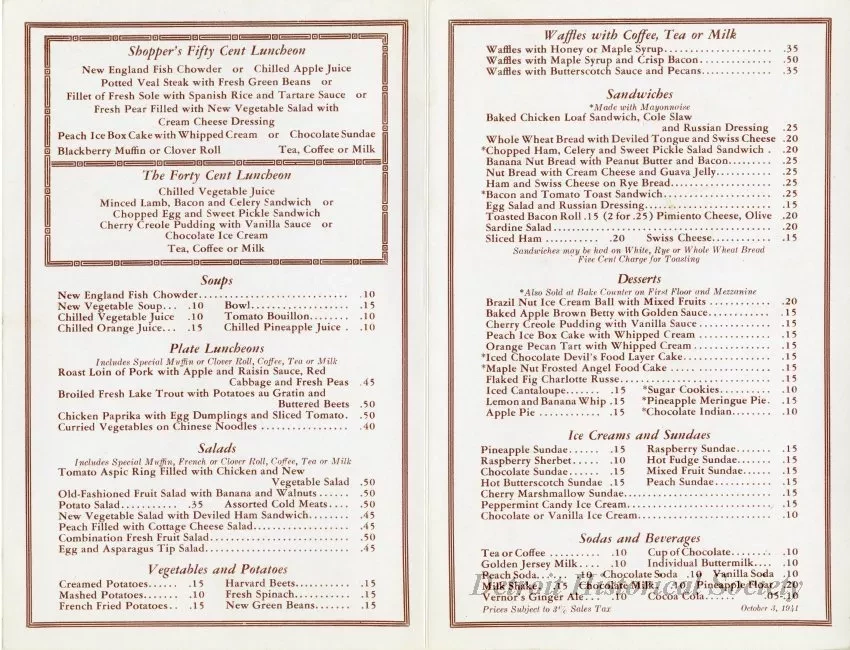 Shopper's Fifty Cent Luncheon
New England Fish Chowder or Chilled Apple Juice
Potted Veal Steak with Fresh Green Beans or
Fillet of Fresh Sole with Spanish Rice and Tartare Sauce or
Fresh Pear Filled with New Vegetable Salad with
Cream Cheese Dressing
Peach Ice Box Cake with Whipped Cream or Chocolate Sundae
Blackberry Muffin or Clover Roll Tea, Coffee or Milk
The Forty Cent Luncheon
Chilled Vegetable Juice
Minced Lamb, Bacon and Celery Sandwich or
Chopped Egg and Sweet Pickle Sandwich
Cherry Creole Pudding with Vanilla Sauce or
Chocolate Ice Cream
Tea, Coffee or Milk
Soups
New England Fish Chowder .10
New Vegetable Soup... .10 Bowl .15
Chilled Vegetable Juice .10 Tomato Bouillon .10
Chilled Orange Juice... .15 Chilled Pineapple Juice . .10
Plate Luncheons
Includes Special Muffin or Clover Roll, Coffee, Tea or Milk
Roast Loin of Pork with Apple and Raisin Sauce, Red
Cabbage and Fresh Peas .45
Broiled Fresh Lake Trout with Potatoes au Gratin and
Buttered Beets .50
Chicken Paprika with Egg Dumplings and Sliced Tomato. .50
Curried Vegetables on Chinese Noodles .40
Salads
Includes Special Muffin, French or Clover Roll, Coffee, Tea or Milk
Tomato Aspic Ring Filled with Chicken and New
Vegetable Salad .50
Old-Fashioned Fruit Salad with Banana and Walnuts .50
Potato Salad .35 Assorted Cold Meats .50
New Vegetable Salad with Deviled Ham Sandwich .45
Peach Filled with Cottage Cheese Salad .45
Combination Fresh Fruit Salad .50
Egg and Asparagus Tip Salad .45
Vegetables and Potatoes
Creamed Potatoes .15 Harvard Beets .15
Mashed Potatoes .10 Fresh Spinach .15
French Fried Potatoes .15 New Green Beans .15
Waffles with Coffee, Tea or Milk
Waffles with Honey or Maple Syrup .35
Waffles with Maple Syrup and Crisp Bacon .50
Waffles with Butterscotch Sauce and Pecans .35
Sandwiches
*Made with Mayonnaise
Baked Chicken Loaf Sandwich, Cole Slaw
and Russian Dressing .25
Whole Wheat Bread with Deviled Tongue and Swiss Cheese .20
*Chopped Ham, Celery and Sweet Pickle Salad Sandwich . .20
Banana Nut Bread with Peanut Butter and Bacon .25
Nut Bread with Cream Cheese and Guava Jelly .25
Ham and Swiss Cheese on Rye Bread .25
*Bacon and Tomato Toast Sandwich .25
Egg Salad and Russian Dressing .15
Toasted Bacon Roll .15 (2 for .25) Pimiento Cheese, Olive .20
Sardine Salad .20
Sliced Ham .20 Swiss Cheese .15
Sandwiches may be had on White, Rye or Whole Wheat Bread
Five Cent Charge for Toasting
Desserts
*Also Sold at Bake Counter on First Floor and Mezzanine
Brazil Nut Ice Cream Ball with Mixed Fruits .20
Baked Apple Brown Betty with Golden Sauce .15
Cherry Creole Pudding with Vanilla Sauce .15
Peach Ice Box Cake with Whipped Cream .15
Orange Pecan Tart with Whipped Cream .15
*Iced Chocolate Devil's Food Layer Cake .15
*Maple Nut Frosted Angel Food Cake .15
Flaked Fig Charlotte Russe .15
Iced Cantaloupe .15 *Sugar Cookies .10
Lemon and Banana Whip .15 *Pineapple Meringue Pie. .15
Apple Pie .15 *Chocolate Indian .10
Ice Creams and Sundaes
Pineapple Sundae .15 Raspberry Sundae .15
Raspberry Sherbet .10 Hot Fudge Sundae .15
Chocolate Sundae .15 Mixed Fruit Sundae .15
Hot Butterscotch Sundae .15 Peach Sundae .15
Cherry Marshmallow Sundae .15
Peppermint Candy Ice Cream .15
Chocolate or Vanilla Ice Cream .10
Sodas and Beverages
Tea or Coffee .10 Cup of Chocolate .10
Golden Jersey Milk .10 Individual Buttermilk .10
Peach Soda .10 Chocolate Soda .10 Vanilla Soda .10
Milk Shake .15 Chocolate Milk .10 Pineapple Float .20
Vernor's Ginger Ale .10 Cocoa Cola .05-.10
Prices Subject to 3% Sales Tax October 3, 1941
Detroit Historical Society